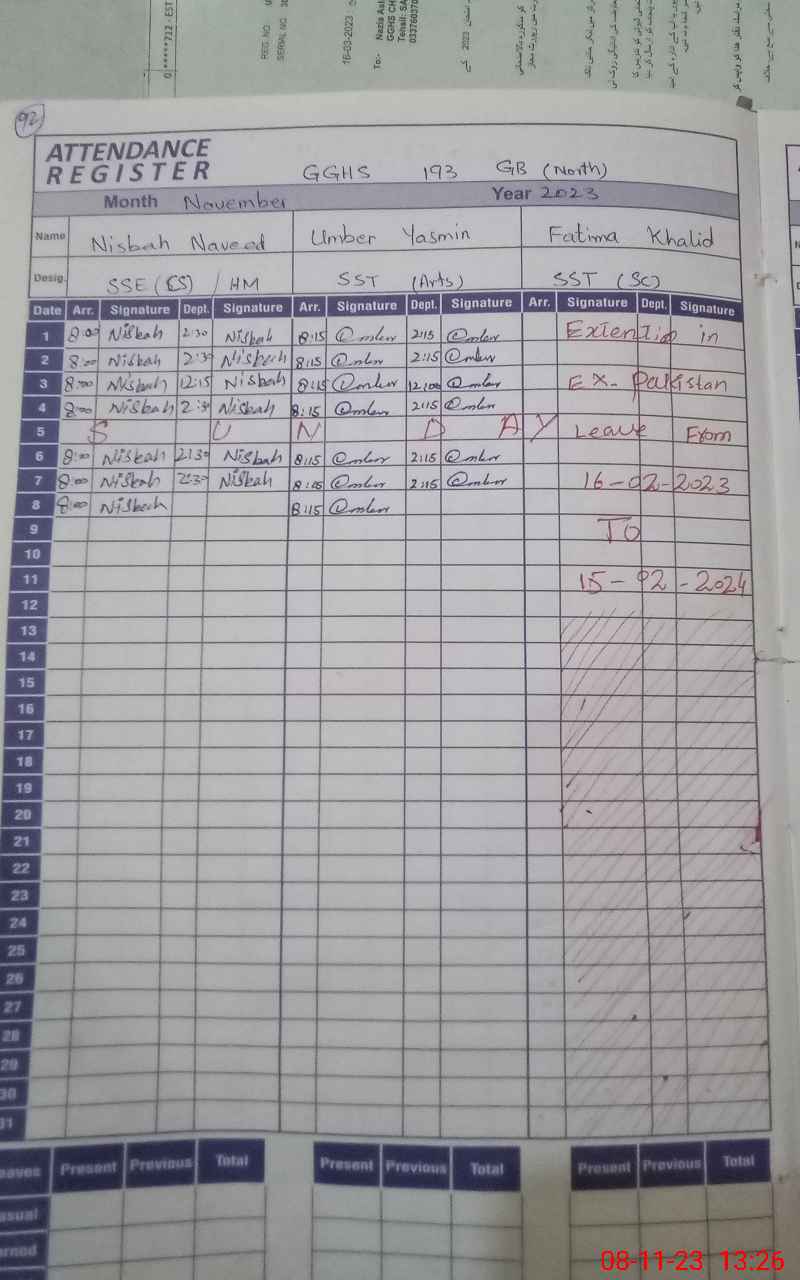 REG. NO
SERIAL NO
16-03-2023
To:-
GGHS
Tehsil:
0*****712 - EST
92
ATTENDANCE
REGISTER GGHS 193 GB (North)
Month November Year 2023
Name Nisbah Naveed Umber Yasmin Fatima Khalid
Desig. SSE (CS) / HM SST (Arts) SST (SC)
Date Arr. Signature Dept. Signature Arr. Signature Dept. Signature Arr. Signature Dept. Signature
1 8:00 Nisbah 2:30 Nisbah 8:15 @mber 2:15 @mber Extention in
2 8:00 Nisbah 2:30 Nisbah 8:15 @mber 2:15 @mber
3 8:00 Nisbah 12:15 Nisbah 8:15 @mber 12:00 @mber Ex- Pakistan
4 8:00 Nisbah 2:30 Nisbah 8:15 @mber 2:15 @mber
5 S U N D A Y Leave From
6 8:00 Nisbah 2:30 Nisbah 8:15 @mber 2:15 @mber
7 8:00 Nisbah 2:30 Nisbah 8:05 @mber 2:15 @mber 16-02-2023
8 8:00 Nisbah 8:15 @mber
9 TO
10
11 15-02-2024
12
13
14
15
16
17
18
19
20
21
22
23
24
25
26
27
28
29
30
31
eaves Present Previous Total Present Previous Total Present Previous Total
asual
arned
08-11-23 13:26